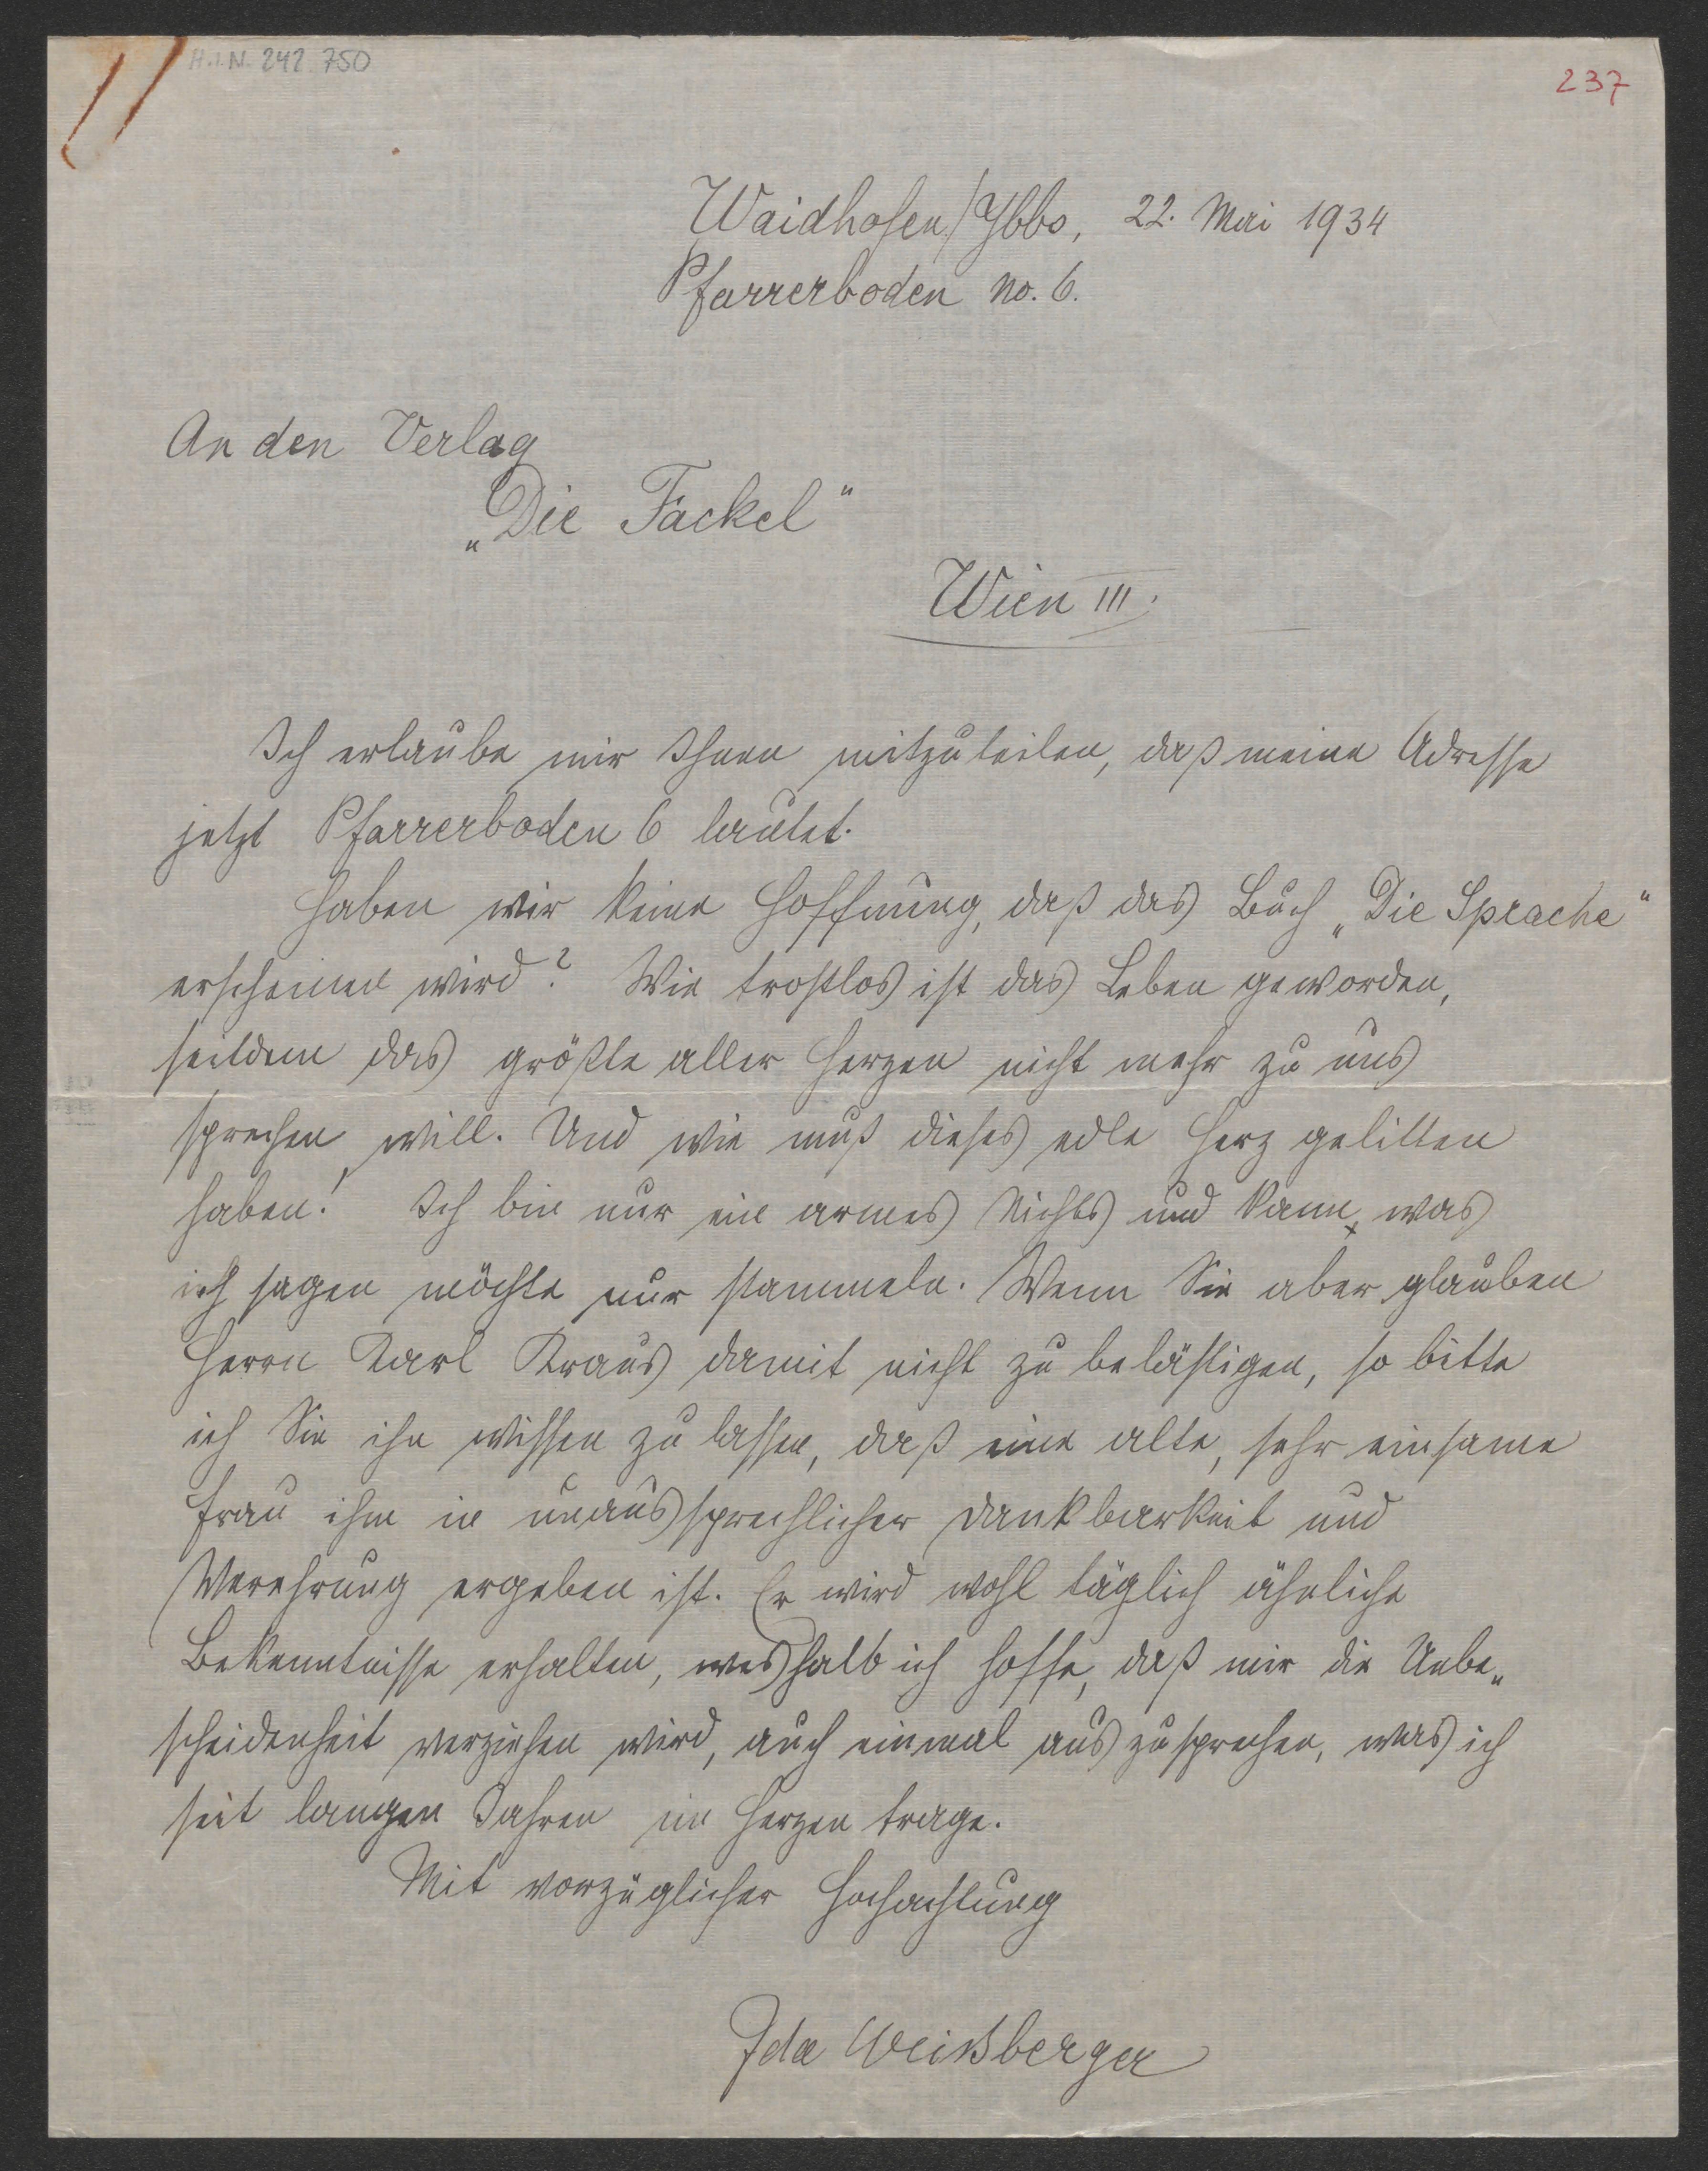 H.I.N. 242 750
237
Waidhofen/Ybbs, 22. Mai 1934
Pfarrerboden No. 6.
An den Verlag
„Die Fackel“
Wien III.
Ich erlaube mir Ihnen mitzuteilen, daß meine Adresse
jetzt Pfarrerboden 6 lautet.
Haben wir keine Hoffnung, daß das Buch „Die Sprache“
erscheinen wird? Wie trostlos ist das Leben geworden,
seitdem das größte aller Herzen nicht mehr zu uns
sprechen will. Und wie muß dieses edle Herz gelitten
haben! Ich bin nur ein armes Nichts und kann, was
ich sagen möchte nur stammeln. Wenn Sie aber glauben
Herrn Karl Kraus damit nicht zu belästigen, so bitte
ich Sie ihn wissen zu lassen, daß eine alte, sehr einsame
Frau ihm in unaussprechlicher Dankbarkeit und
Verehrung ergeben ist. Er wird wohl täglich ähnliche
Bekenntnisse erhalten, weshalb ich hoffe, daß mir die Unbe„
scheidenheit verziehen wird, auch einmal auszusprechen, was ich
seit langen Jahren im Herzen trage.
Mit vorzüglicher Hochachtung
Ida Weißberger